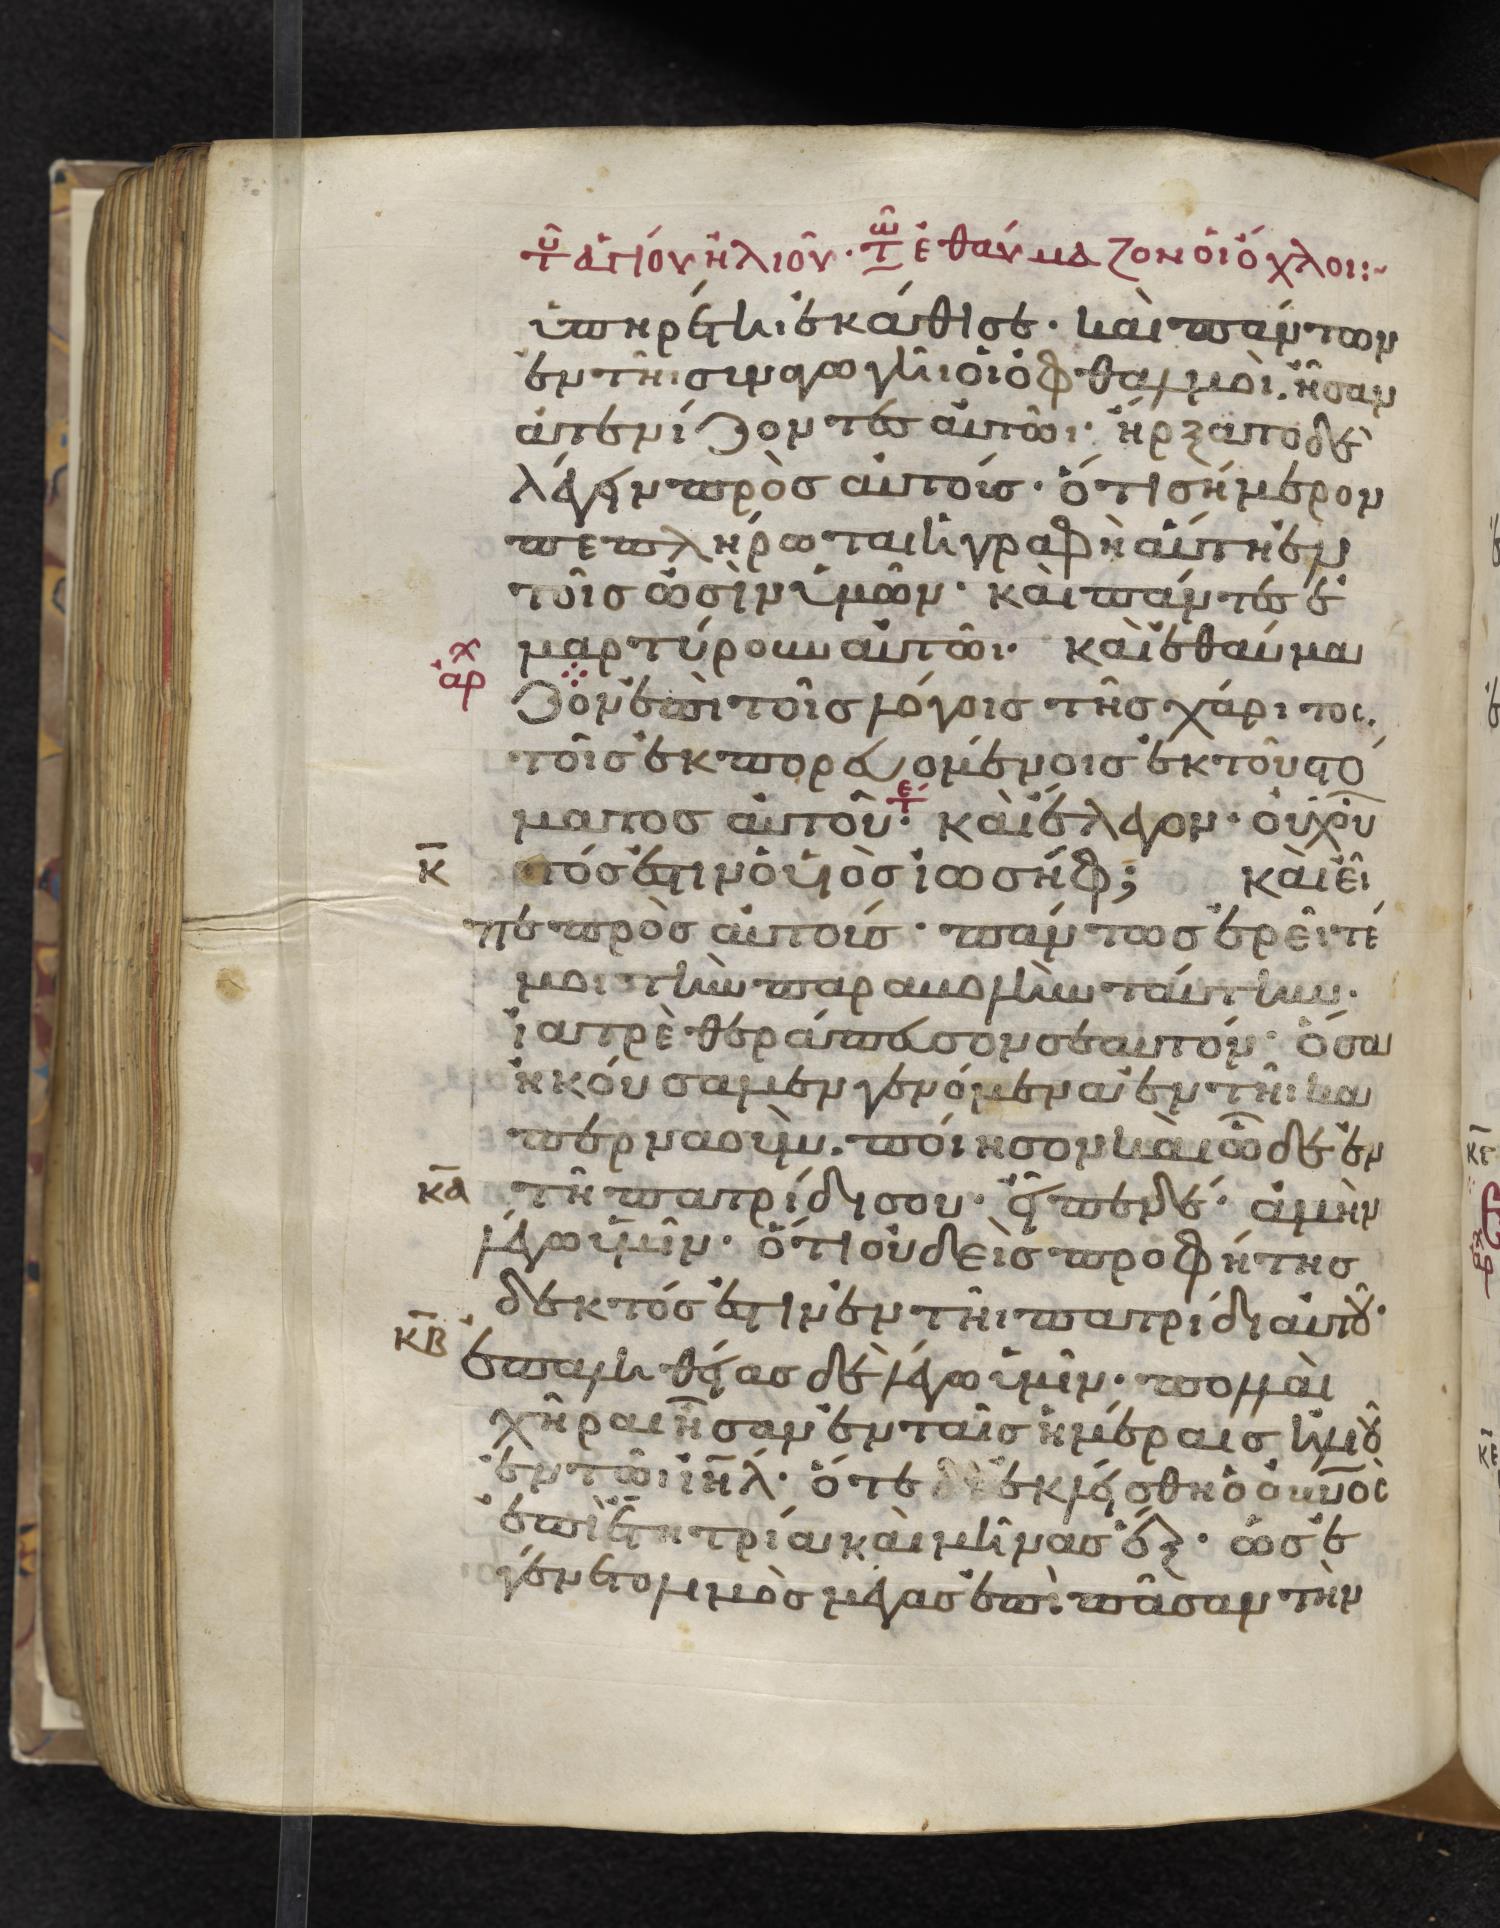 τοῦ ἁγίου ἡλιοῦ· τῷ ἐθαύμαζον οἱ ὄχλοι:~
ὑπηρέτηι ἐκάθισε· καὶ πάντων
ἐν τῆι συναγωγῆι οἱ ὀφθαλμοὶ. ἦσαν
ἀτενίζοντες αὐτῶι· ἤρξατο δὲ
λέγειν πρὸς αὐτοὺς· ὅτι σήμερον
πεπλήρωται ἡ γραφὴ αὕτη ἐν
τοῖς ὠσὶν ὑμῶν· καὶ πάντες ἐ
μαρτύρουν αὐτῶι· καὶ ἐθαύμα
χ
ἀρ
ζον ἐπὶ τοῖς λόγοις τῆς χάριτος.
τοῖς ἐκπορευομένοις ἐκ τοῦ στό
ματος αὐτοῦ· καὶ ἔλεγον· οὐχ οὗ
κ̅ τός ἐστιν ὁ υἱὸς ἰωσήφ; καὶ εἶ
πε πρὸς αὐτούς· πάντως ἐρεῖτέ
μοι τὴν παραβολὴν ταύτην·
ἰατρὲ θεράπευσον σεαυτόν· ὅσα
ἠκούσαμεν γενόμενα ἐν τῆι κα
περναοὺμ. ποίησον καὶ ὧδε ἐν
κ̅α̅ τῆ πατρίδι σου· εἶπεν δέ· ἀμὴν
λέγω ὑμῖν· ὅτι οὐδεὶς προφήτης
δεκτός ἐστιν ἐν τῆι πατρίδι αὐτοῦ·
κ̅β̅ ἐπ' ἀληθείας δὲ λέγω ὑμῖν· πολλαὶ
χῆραι ἦσαν ἐν ταῖς ἡμέραις ἡλιοῦ
ἐν τῶι ἰη̅λ· ὅτε ἐκλείσθη ὁ οὐ̅νος
ἐπὶ ἔτη τρία καὶ μῆνας ἕξ· ὡς ἐ
γένετο λιμὸς μέγας ἐπὶ πᾶσαν τὴν